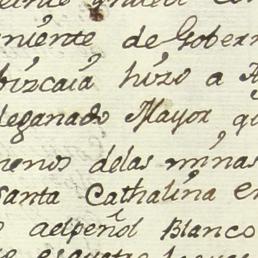 niente de Gobern
bizcaia hizo a
deganado Mayor q
menos delas minas
Santa Cathalina en
adpeñol Blanco